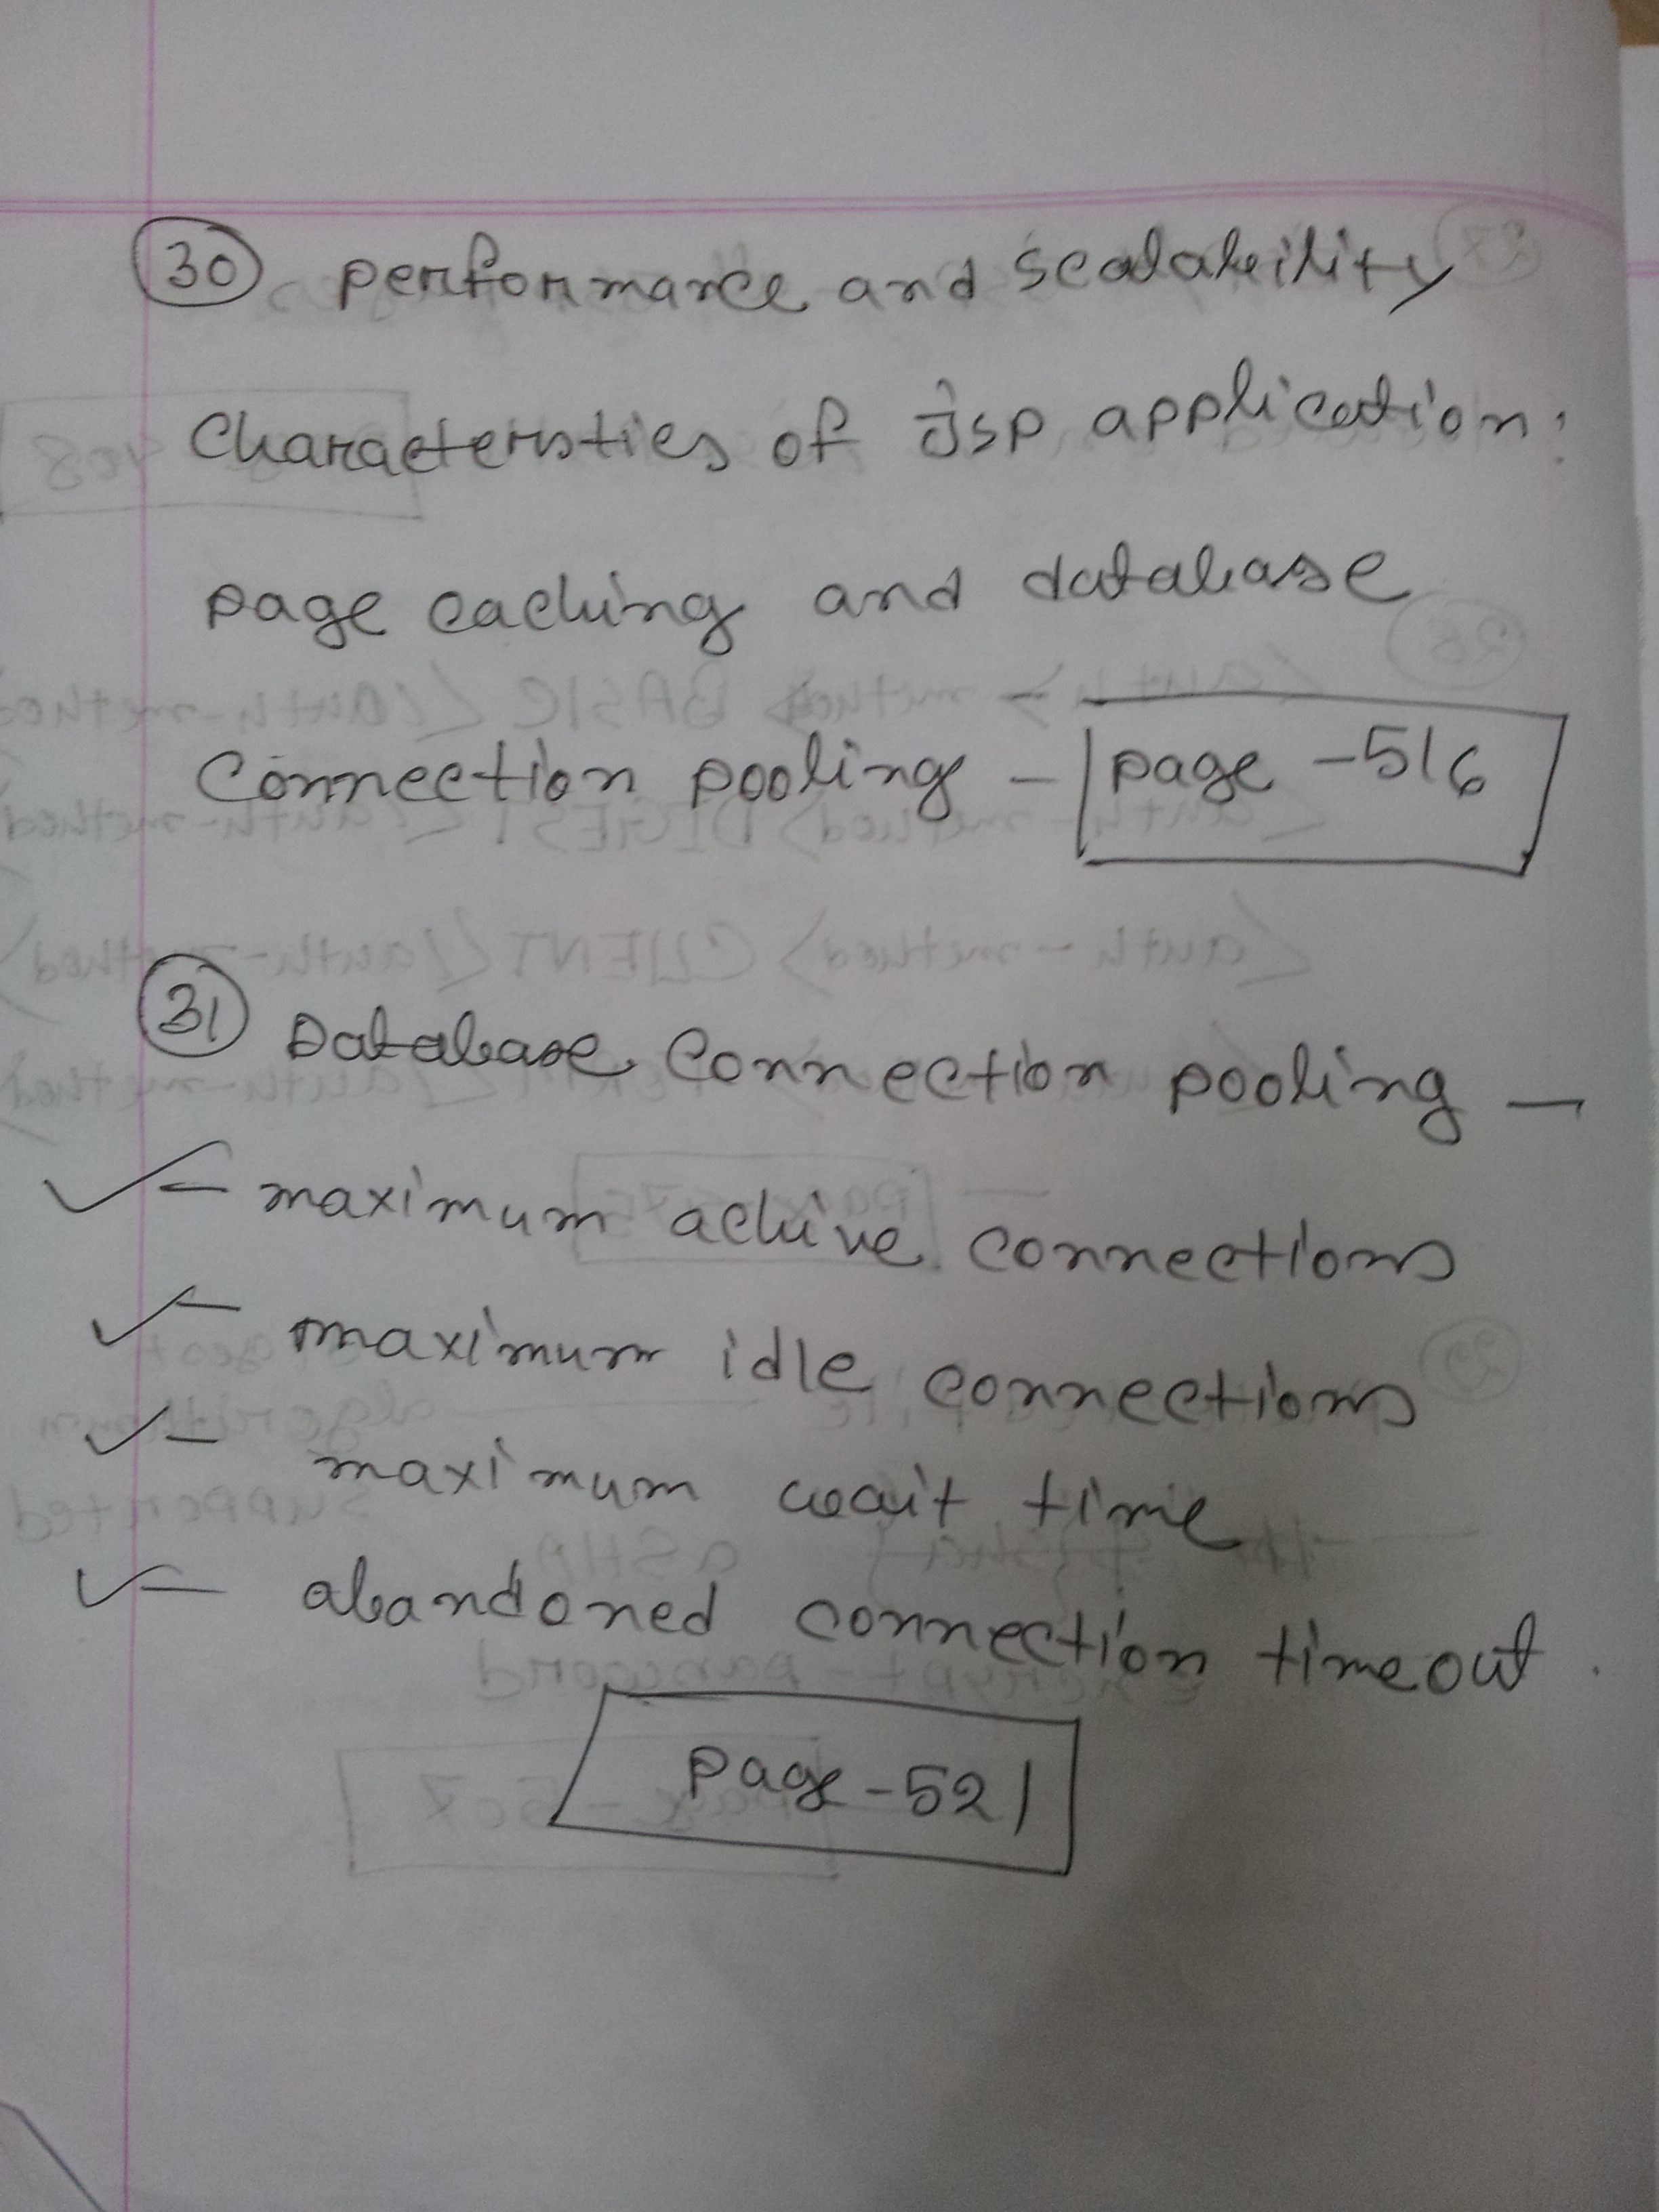 30 performance and scalability
characteristics of Jsp application:
page caching and database
connection pooling - page - 516
31 Database connection pooling -
- maximum active connections
- maximum idle connections
- maximum wait time
- abandoned connection timeout.
page - 521